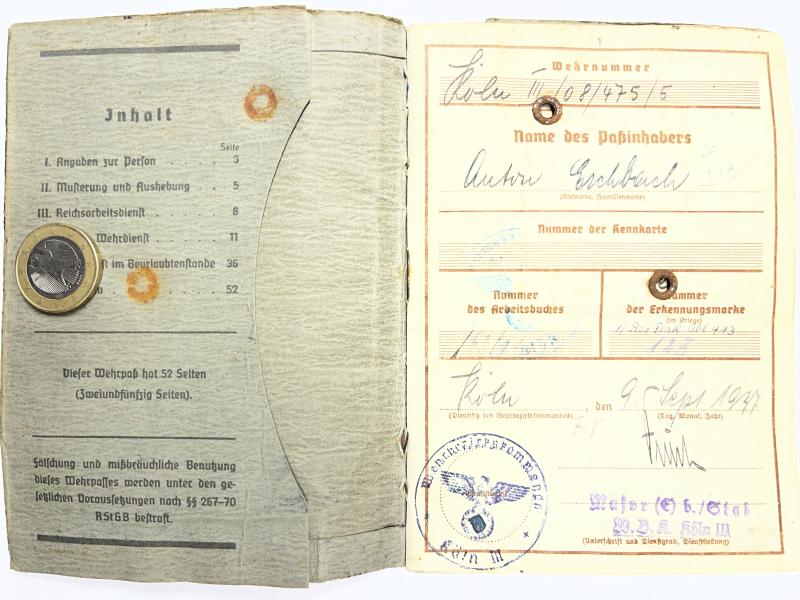 Inhalt
Seite
I. Angaben zur Person . . . . . 3
II. Musterung und Aushebung . . . 5
III. Reichsarbeitsdienst . . . . . 8
Wehrdienst . . . . 11
im Beurlaubtenstande 36
52
Dieser Wehrpaß hat 52 Seiten
(Zweiundfünfzig Seiten).
Fälschung und mißbräuchliche Benutzung
dieses Wehrpasses werden unter den ge-
setzlichen Voraussetzungen nach §§ 267-70
RStGB bestraft.
1
Wehrnummer
Köln III /08/475/5
Name des Paßinhabers
Anton Eschbach
(Rufname, Familienname)
Nummer der Kennkarte
Nummer
des Arbeitsbuches
Nummer
der Erkennungsmarke
(im Kriege)
123
Köln, den 9. Sept. 1937
(Dienstsitz des Wehrbezirkskommandos) (Tag, Monat, Jahr)
Wehrbezirkskommando
Köln III
Major (E) b./Stab
W.B.K. Köln III
(Unterschrift und Dienstgrad, Dienststellung)